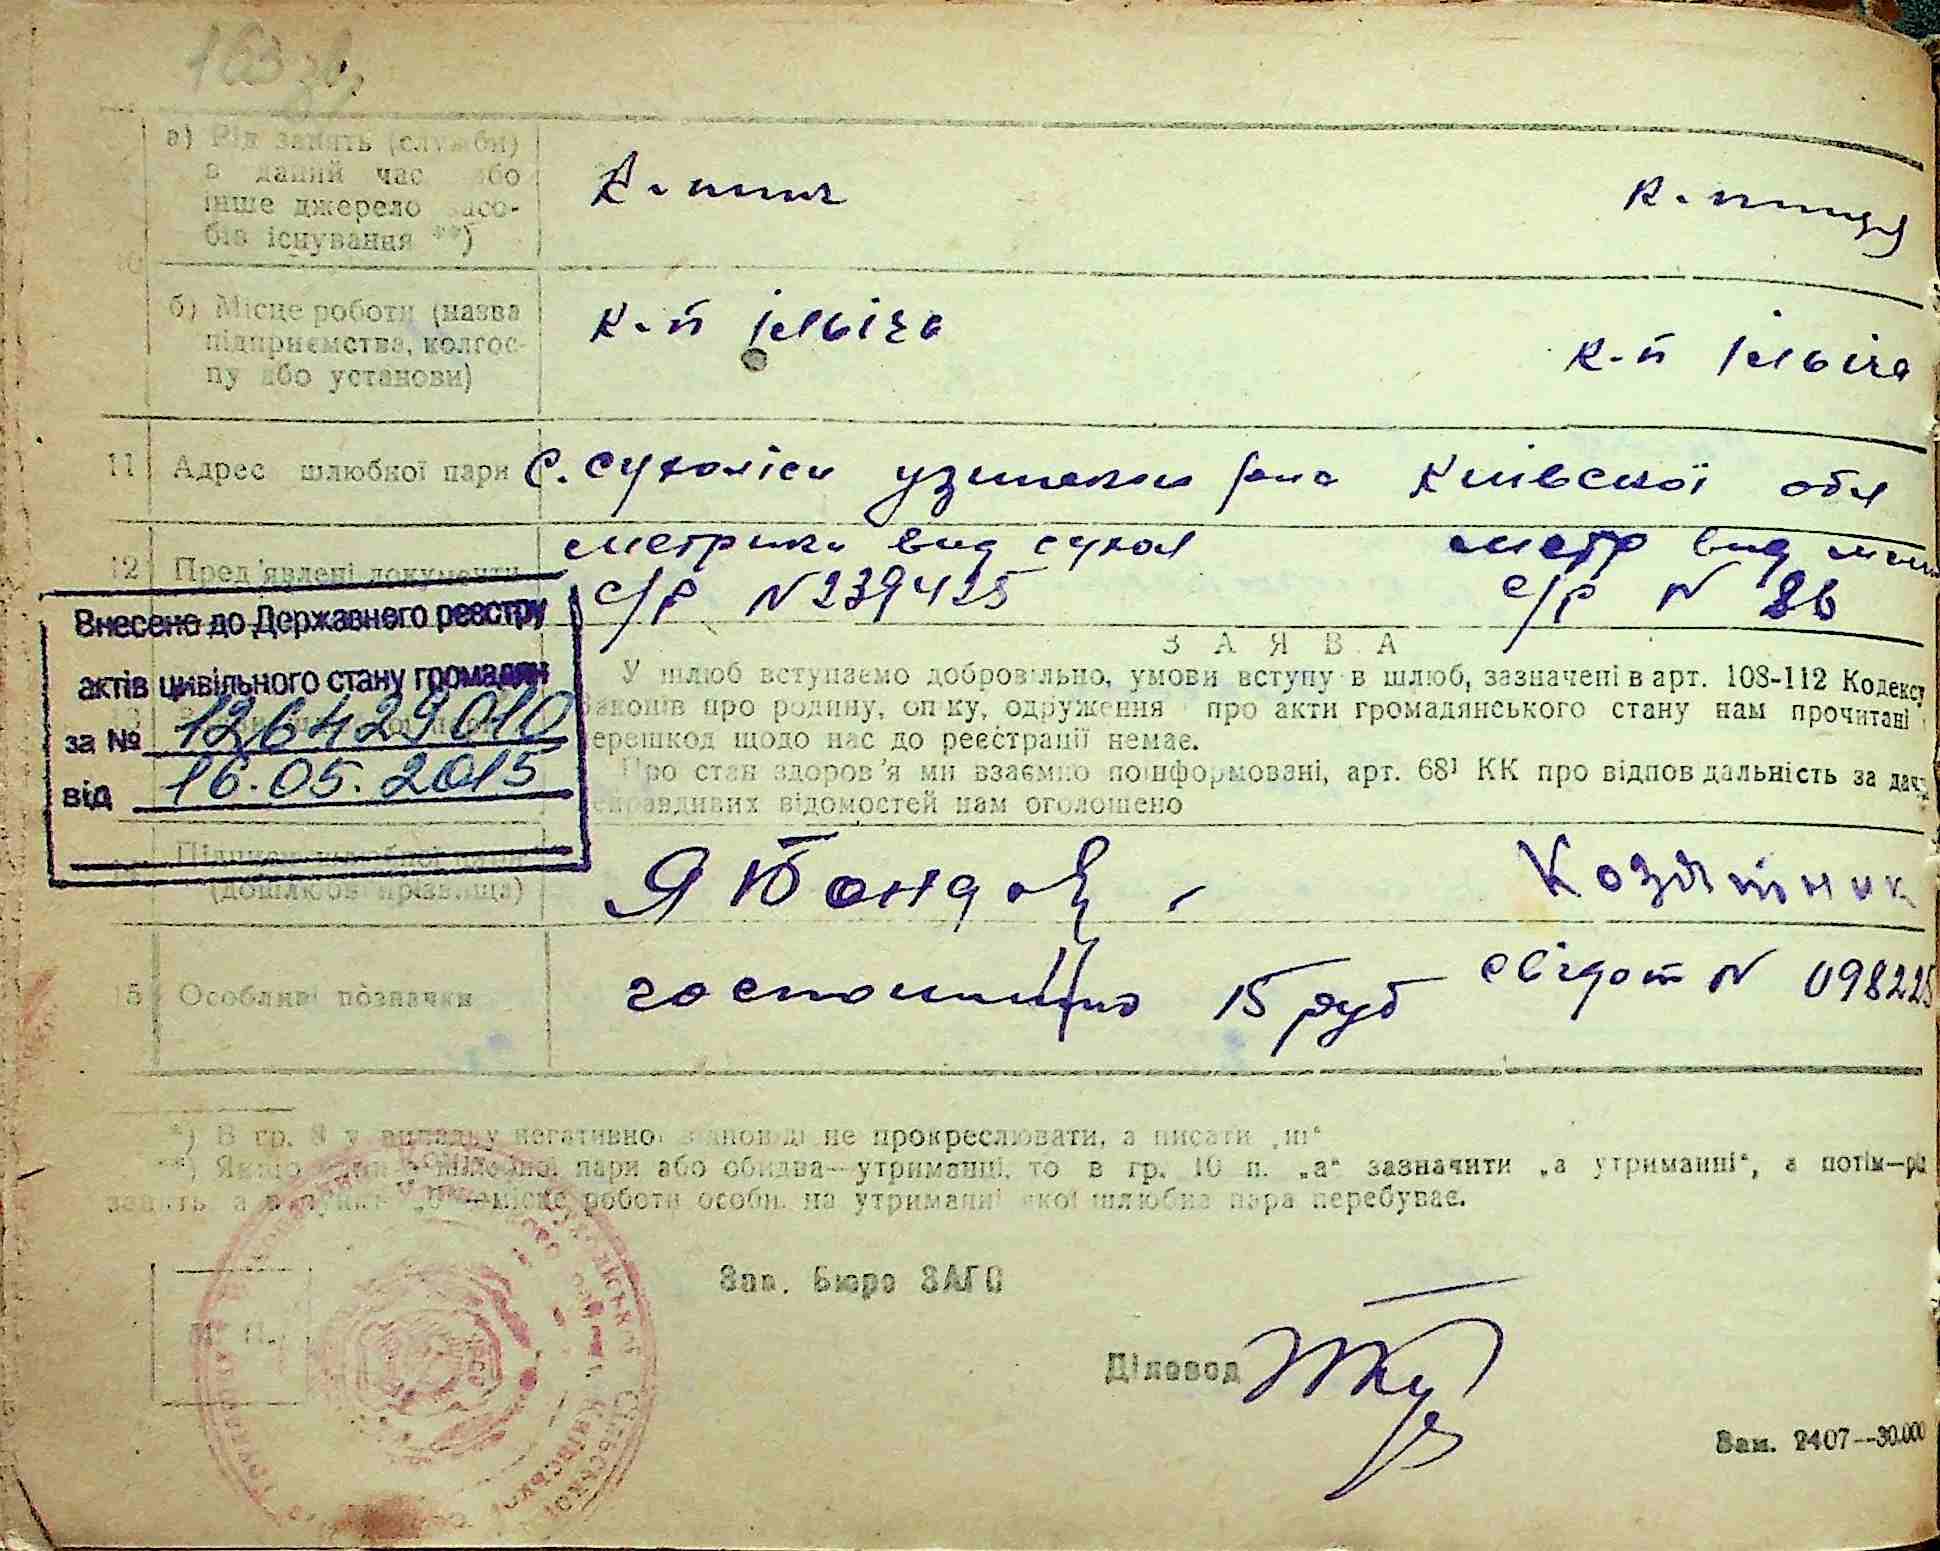 163 зв.
а) Рід занять (служби)
в даний час або
інше джерело засо-
бів існування **)
К-ник
К-ниця
10
б) Місце роботи (назва
підприємства, колгос-
пу або установи)
К-п Ілліча
К-п Ілліча
11 Адрес шлюбної пари
с. Сухоліси Узинськ р-на Київської обл
12 Пред'явлені документи
метрика вид сухол
с/р N 239425
метр вид
с/р N 86
Внесено до Державного реєстру
актів цивільного стану громадян
за № 126429010
від 16.05.2015
ЗАЯВА
У шлюб вступаємо добровільно, умови вступу в шлюб, зазначені в арт. 108-112 Кодексу
законів про родину, опіку, одруження про акти громадянського стану нам прочитані і
перешкод щодо нас до реєстрації немає.
Про стан здоров'я ми взаємно поінформовані, арт. 68¹ КК про відповідальність за дачу
неправдивих відомостей нам оголошено
Підписи шлюбної пари
(дошлюбні прізвища)
Я Бондар
Козятник
15 Особливі позначки
госпомито 15 руб свідот N 098225
*) В гр. 8 у випадку негативної відповіді не прокреслювати, а писати „ні“
**) Якщо один з шлюбної пари або обидва—утриманці, то в гр. 10 п. „а“ зазначити „а утриманні“, а потім—рід
занять, а в пункті „б“ місце роботи особи, на утриманні якої шлюбна пара перебуває.
М. П.
Зав. Бюро ЗАГС
Діловод
Зам. 2407—30.000